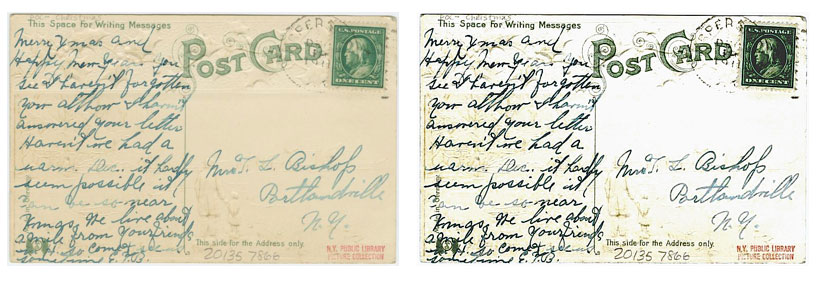 This Space for Writing Messages
POST CARD
U.S. POSTAGE
ONE CENT
Merry Xmas and
Happy New Year. You
see I haven't forgotten
you althow I haven't
answered your letter
Haven't we had a
warm Dec. it hardly
seem possible it
can be so near
Xmas. We live about
2 mile from your friends
so come
sometime E.T.B.
Mrs T. L. Bishop
Portlandville
N.Y.
This side for the Address only.
20135 7866
N.Y. PUBLIC LIBRARY
PICTURE COLLECTION
This Space for Writing Messages
POST CARD
U.S. POSTAGE
ONE CENT
Merry Xmas and
Happy New Year. You
see I haven't forgotten
you althow I haven't
answered your letter
Haven't we had a
warm Dec. it hardly
seem possible it
can be so near
Xmas. We live about
2 mile from your friends
so come
sometime E.T.B.
Mrs T. L. Bishop
Portlandville
N.Y.
This side for the Address only.
20135 7866
N.Y. PUBLIC LIBRARY
PICTURE COLLECTION